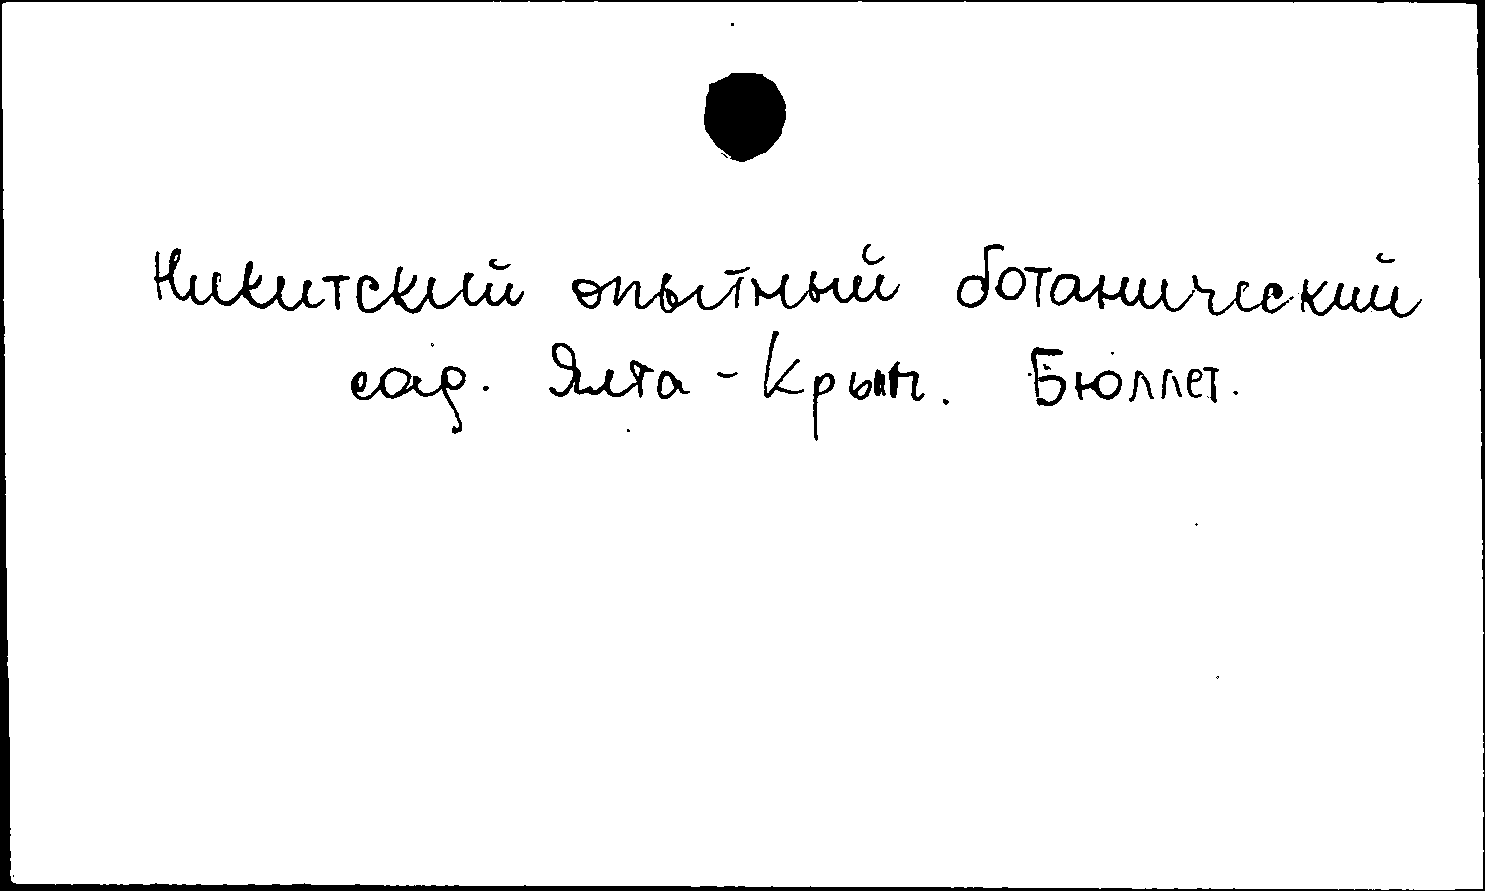 Никитский опытный ботанический
сад. Ялта - Крым. Бюллет.